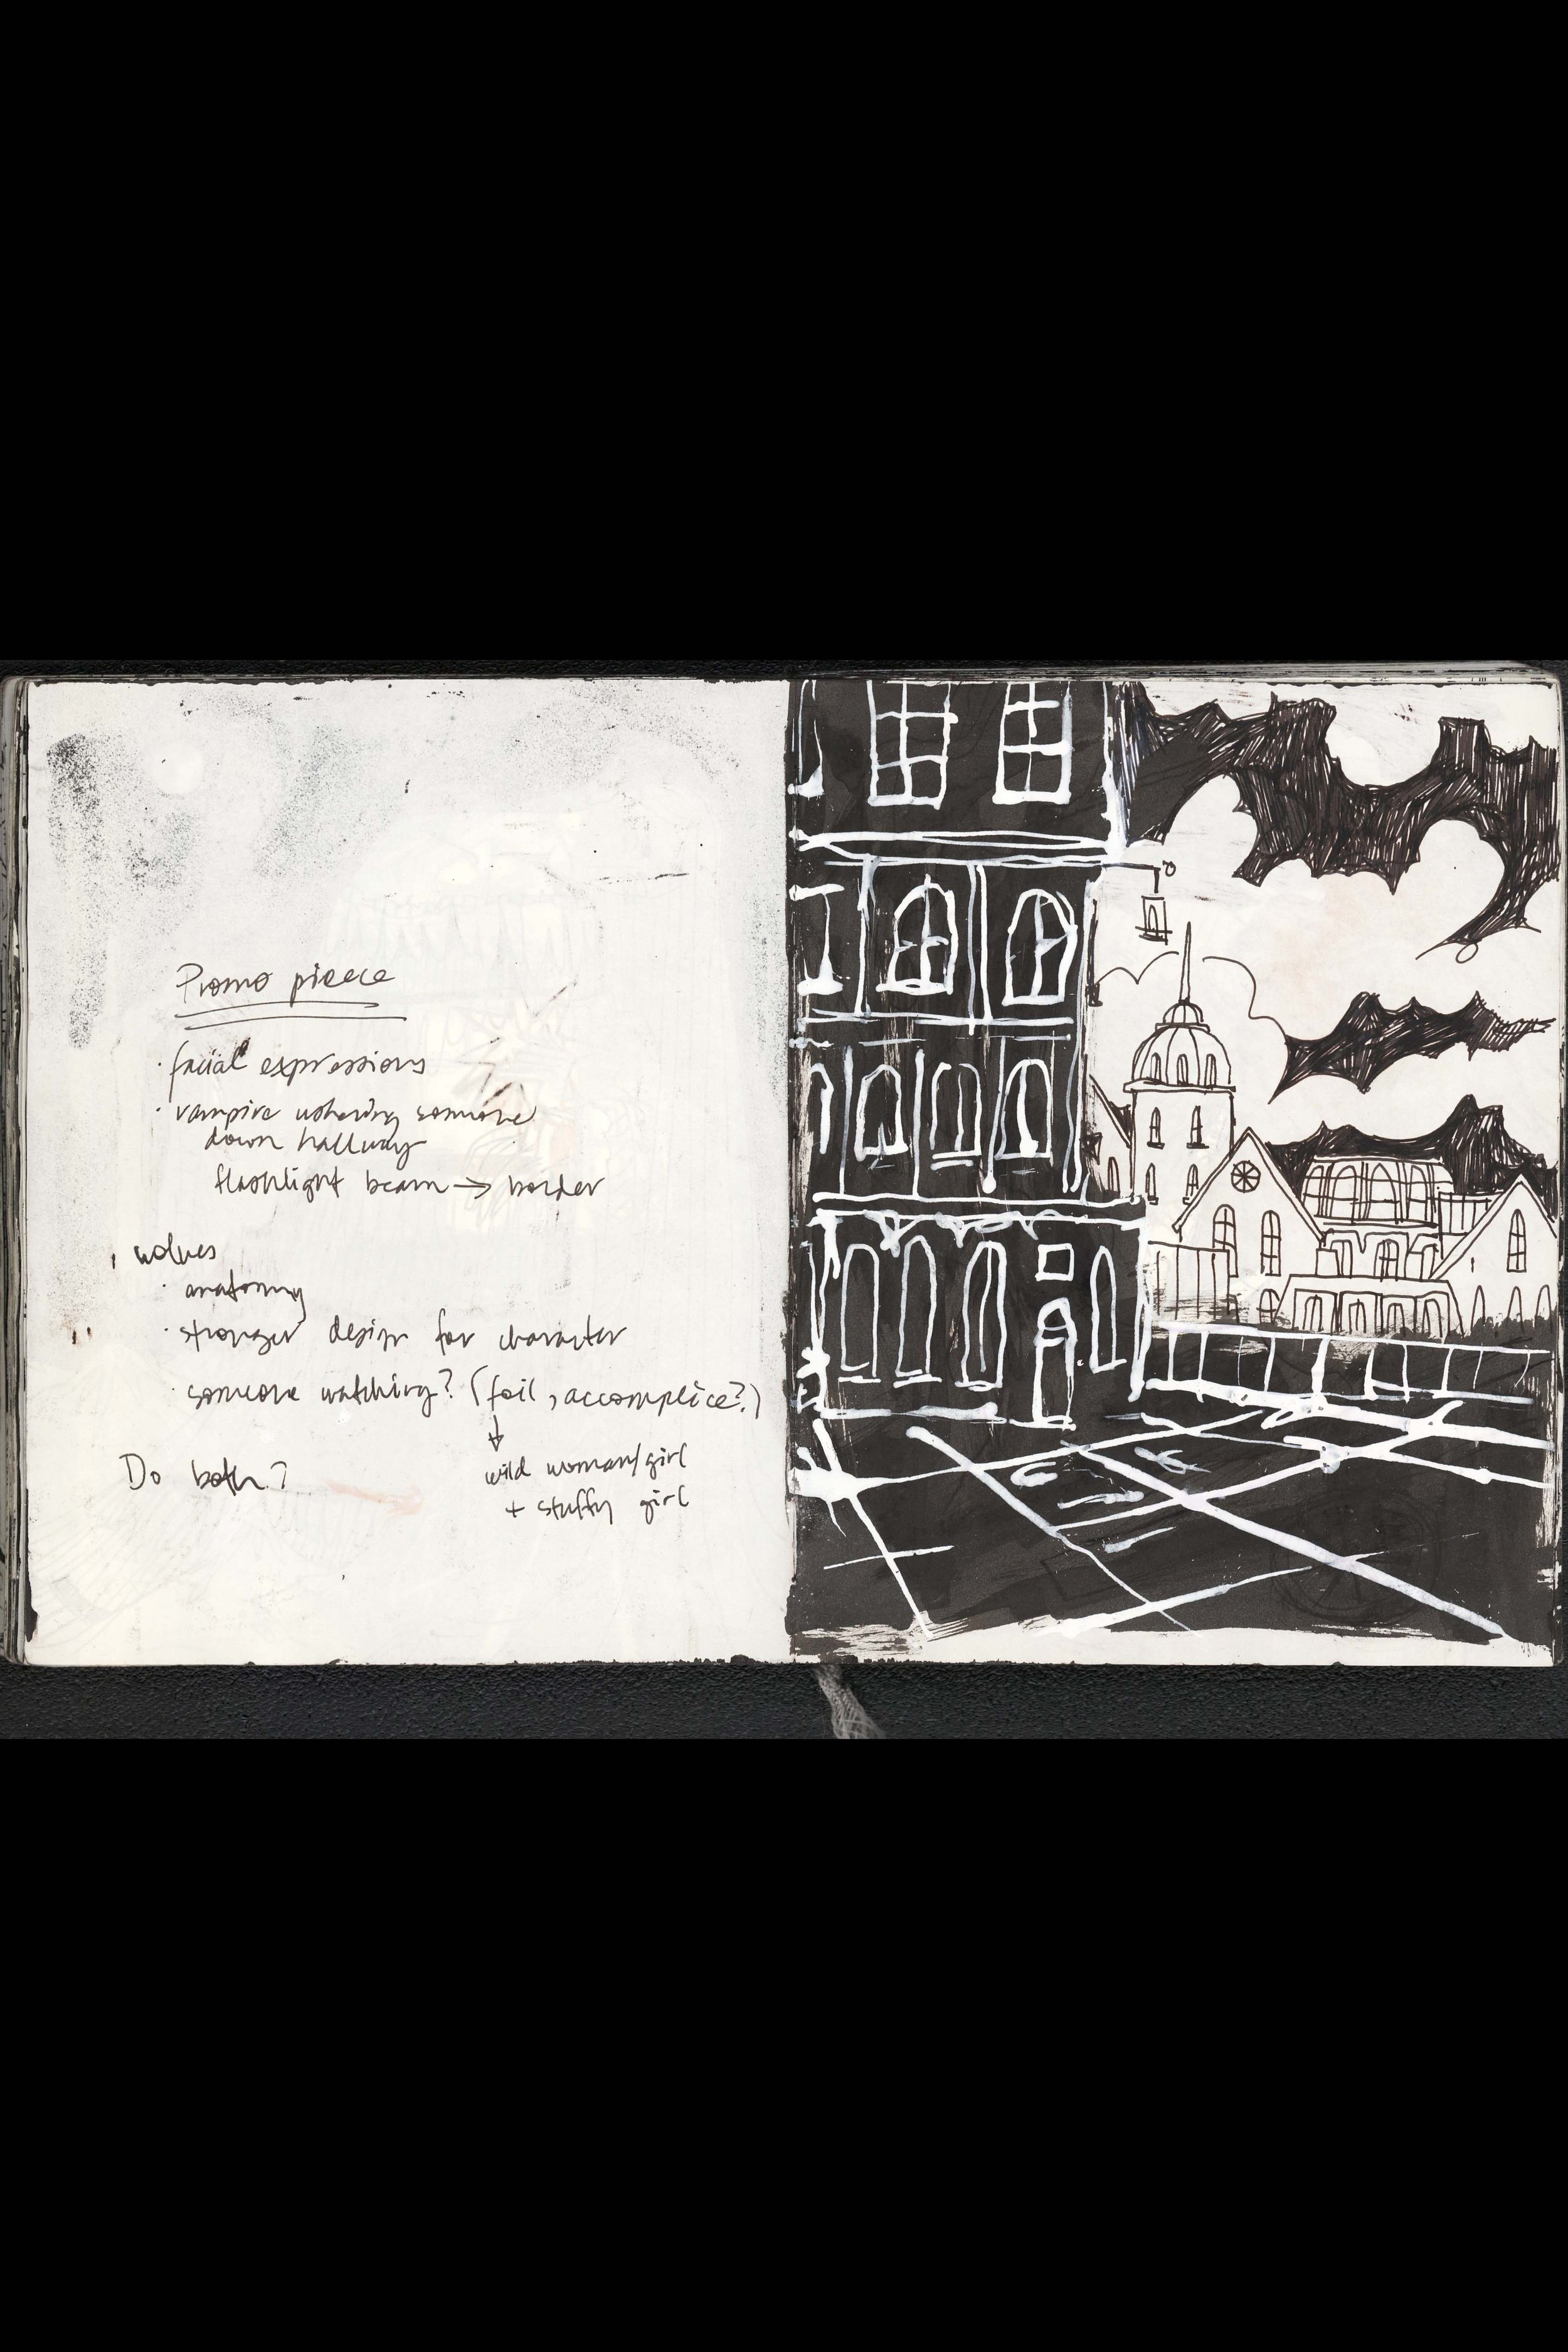 Promo piece
· facial expressions
· vampire ushering someone
down hallway
flashlight beam → border
· wolves
· anatomy
· stronger design for character
· someone watching? (foil, accomplice?)
↓
wild woman/girl
+ stuffy girl
Do both?